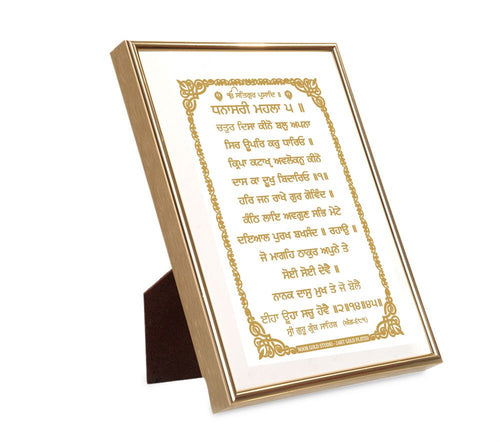 ੴ ਸਤਿਗੁਰ ਪ੍ਰਸਾਦਿ ॥
ਧਨਾਸਰੀ ਮਹਲਾ ੫ ॥
ਚਤੁਰ ਦਿਸਾ ਕੀਨੋ ਬਲੁ ਅਪਨਾ
ਸਿਰ ਊਪਰਿ ਕਰੁ ਧਾਰਿਓ ॥
ਕ੍ਰਿਪਾ ਕਟਾਖ੍ਯ੍ਯ ਅਵਲੋਕਨੁ ਕੀਨੋ
ਦਾਸ ਕਾ ਦੂਖੁ ਬਿਦਾਰਿਓ ॥੧॥
ਹਰਿ ਜਨ ਰਾਖੇ ਗੁਰ ਗੋਵਿੰਦ ॥
ਕੰਠਿ ਲਾਇ ਅਵਗੁਣ ਸਭਿ ਮੇਟੇ
ਦਇਆਲ ਪੁਰਖ ਬਖਸੰਦ ॥ ਰਹਾਉ ॥
ਜੋ ਮਾਗਹਿ ਠਾਕੁਰ ਅਪੁਨੇ ਤੇ
ਸੋਈ ਸੋਈ ਦੇਵੈ ॥
ਨਾਨਕ ਦਾਸੁ ਮੁਖ ਤੇ ਜੋ ਬੋਲੈ
ਈਹਾ ਊਹਾ ਸਚੁ ਹੋਵੈ ॥੨॥੧੪॥੪੫॥
ਸ੍ਰੀ ਗੁਰੂ ਗ੍ਰੰਥ ਸਾਹਿਬ (ਅੰਗ-੬੮੧)
NOOR GOLD STUDIO - 24KT GOLD PLATED